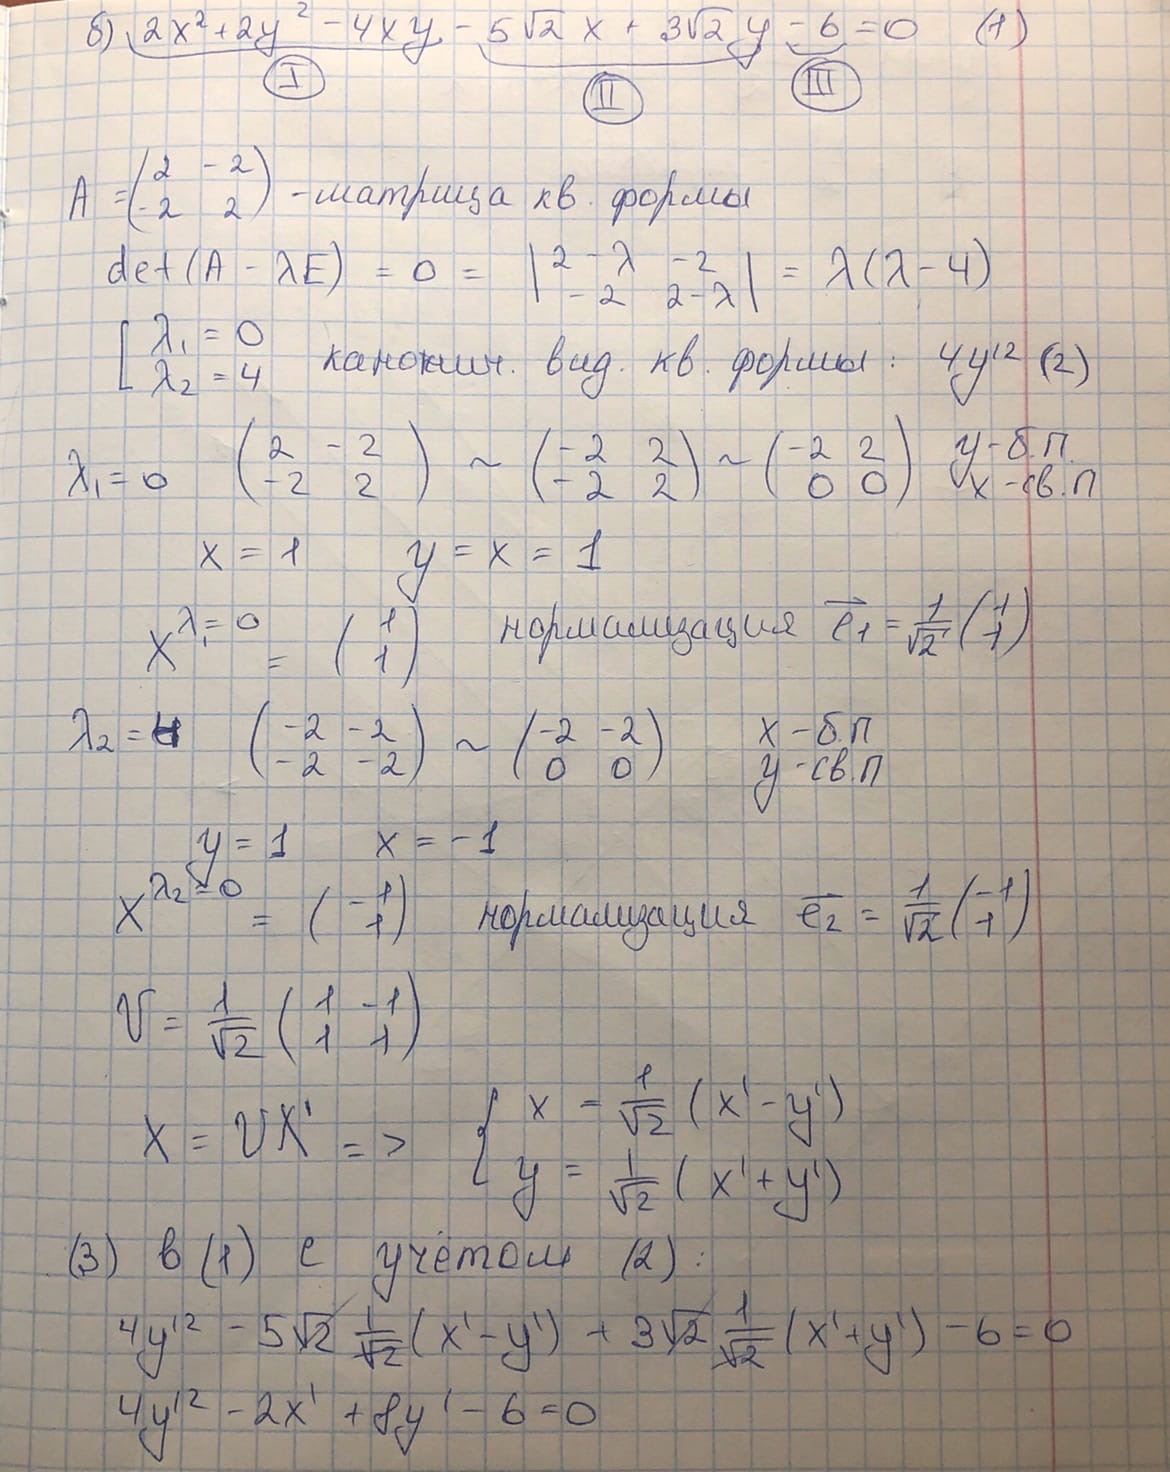 б) 2x² + 2y² - 4xy - 5√2 x + 3√2 y - 6 = 0 (1)
I II III
A = (2 -2; -2 2) - матрица кв. формы
det(A - λE) = 0 = |2-λ -2; -2 2-λ| = λ(λ-4)
[λ₁ = 0 λ₂ = 4 канонич. вид. кв. формы: 4y'² (2)
λ₁ = 0 (2 -2; -2 2) ~ (-2 2; -2 2) ~ (-2 2; 0 0) y - б.п. x - св.п
x = 1 y = x = 1
X^λ₁=0 = (1; 1) нормализация e₁ = 1/√2 (1; 1)
λ₂ = 4 (-2 -2; -2 -2) ~ (-2 -2; 0 0) x - б.п y - св.п
y = 1 x = -1
X^λ₂=0 = (-1; 1) нормализация e₂ = 1/√2 (-1; 1)
V = 1/√2 (1 -1; 1 1)
X = VX' => { x = 1/√2 (x' - y')
y = 1/√2 (x' + y')
(3) в (1) с учётом (2):
4y'² - 5√2 1/√2 (x' - y') + 3√2 1/√2 (x' + y') - 6 = 0
4y'² - 2x' + 8y' - 6 = 0